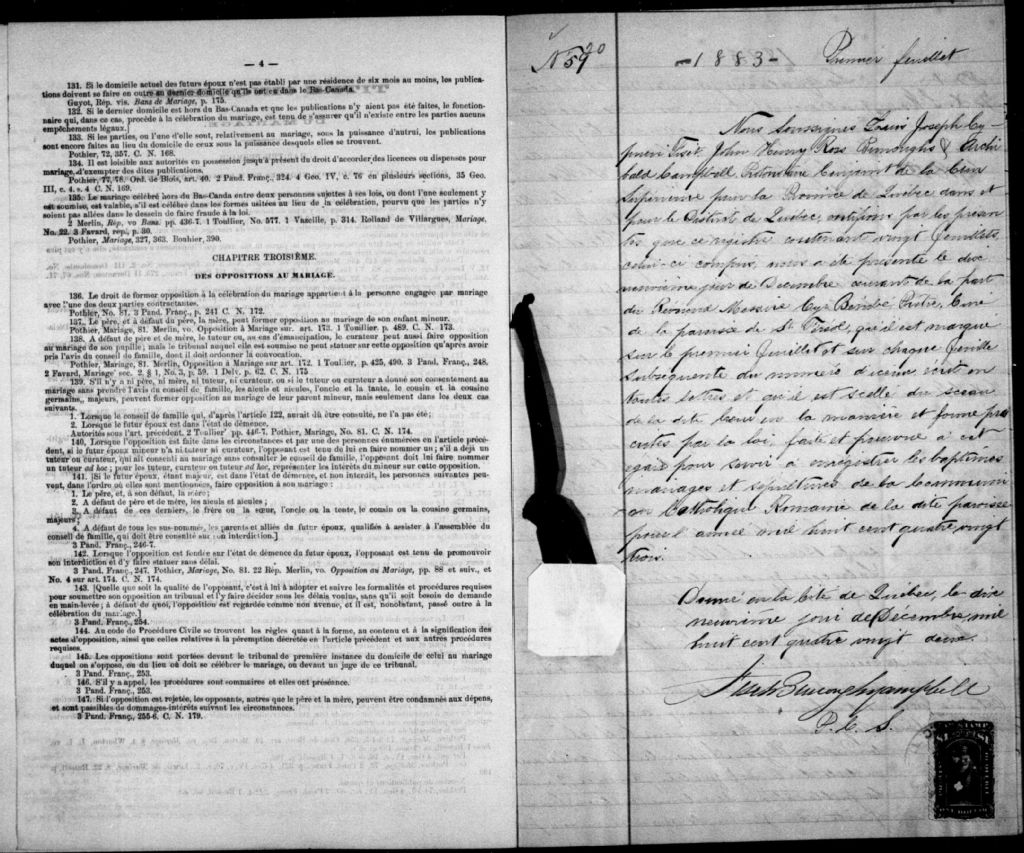 — 4 —
131. Si le domicile actuel des futurs époux n'est pas établi par une résidence de six mois au moins, les publica-
tions doivent se faire en outre au dernier domicile qu'ils ont eu dans le Bas-Canada.
Guyot, Rép. vis. Bans de Mariage, p. 175.
132. Si le dernier domicile est hors du Bas-Canada et que les publications n'y aient pas été faites, le fonction-
naire qui, dans ce cas, procède à la célébration du mariage, est tenu de s'assurer qu'il n'existe entre les parties aucuns
empêchements légaux.]
133. Si les parties, ou l'une d'elles sont, relativement au mariage, sous la puissance d'autrui, les publications
sont encore faites au lieu du domicile de ceux sous la puissance desquels elles se trouvent.
Pothier, 72, 357. C. N. 168.
134. Il est loisible aux autorités en possession jusqu'à présent du droit d'accorder des licences ou dispenses pour
mariage, d'exempter des dites publications.
Pothier, 77, 78. Ord. de Blois, art. 40. 2 Pand. Franç., 324. 4 Geo. IV, c. 76 en plusieurs sections, 35 Geo.
III, c. 4. s. 4 C. N. 169.
135. Le mariage célébré hors du Bas-Canda entre deux personnes sujettes à ses lois, ou dont l'une seulement y
est soumise, est valable, s'il est célébré dans les formes usitées au lieu de la célébration, pourvu que les parties n'y
soient pas allées dans le dessein de faire fraude à la loi.
2 Merlin, Rép. vo Bans. pp. 436-7. 1 Toullier, No. 577. 1 Vazeille, p. 314. Rolland de Villargues, Mariage,
No. 22. 3 Favard, rep. p. 30.
Pothier, Mariage, 327, 363. Bouhier, 390.
CHAPITRE TROISIÈME.
DES OPPOSITIONS AU MARIAGE.
136. Le droit de former opposition à la célébration du mariage appartient à la personne engagée par mariage
avec l'une des deux parties contractantes.
Pothier, No. 81. 3 Pand. Franç., p. 241 C. N. 172.
137. Le père, et à défaut du père, la mère, peut former opposition au mariage de son enfant mineur.
Pothier, Mariage, 81. Merlin, vo. Opposition à Mariage sur. art. 173. 1 Toullier. p. 489. C. N. 173.
138. A défaut de père et de mère, le tuteur ou, au cas d'émancipation, le curateur peut aussi faire opposition
au mariage de son pupille; mais le tribunal auquel elle est soumise ne peut statuer sur cette opposition qu'après avoir
pris l'avis du conseil de famille, dont il doit ordonner la convocation.
Pothier, Mariage, 81. Merlin, Opposition à Mariage sur art. 172. 1 Toullier, p. 425, 490. 3 Pand. Franç., 248.
2 Favard, Mariage sec. 2. § 1, No. 3, p. 59. 1 Delv. p. 62. C. N. 175
139. S'il n'y a ni père, ni mère, ni tuteur, ni curateur, ou si le tuteur ou curateur a donné son consentement au
mariage sans prendre l'avis du conseil de famille, les aïeuls et aïeules, l'oncle et la tante, le cousin et la cousine
germains, majeurs, peuvent former opposition au mariage de leur parent mineur, mais seulement dans les deux cas
suivants.
1. Lorsque le conseil de famille qui, d'après l'article 122, aurait dû être consulté, ne l'a pas été;
2. Lorsque le futur époux est dans l'état de démence.
Autorités sous l'art. précédent. 2 Toullier pp. 446-7. Pothier, Mariage, No. 81. C. N. 174.
140. Lorsque l'opposition est faite dans les circonstances et par une des personnes énumérées en l'article précé-
dent, si le futur époux mineur n'a ni tuteur ni curateur, l'opposant est tenu de lui en faire nommer un; s'il a déjà un
tuteur ou curateur, qui ait consenti au mariage sans consulter le conseil de famille, l'opposant doit lui faire nommer
un tuteur ad hoc; pour les tuteur, curateur ou tuteur ad hoc, représenter les intérêts du mineur sur cette opposition.
141. [Si le futur époux, étant majeur, est dans l'état de démence, et non interdit, les personnes suivantes peu-
vent, dans l'ordre où elles sont mentionnées, faire opposition à son mariage:
1. Le père, et, à son défaut, la mère;
2. A défaut de père et de mère, les aïeuls et aïeules;
3. A défaut de ces derniers, le frère ou la sœur, l'oncle ou la tante, le cousin ou la cousine germains,
majeurs;
4. A défaut de tous les sus-nommés, les parents et alliés du futur époux, qualifiés à assister à l'assemblée du
conseil de famille, qui doit être consulté sur son interdiction.]
3 Pand. Franç., 246-7.
142. Lorsque l'opposition est fondée sur l'état de démence du futur époux, l'opposant est tenu de promouvoir
son interdiction et d'y faire statuer sans délai.
3 Pand. Franç., 247. Pothier, Mariage, No. 81. 22 Rép. Merlin, vo. Opposition au Mariage, pp. 88 et suiv., et
No. 4 sur art. 174. C. N. 174.
143. [Quelle que soit la qualité de l'opposant, c'est à lui à adopter et suivre les formalités et procédures requises
pour soumettre son opposition au tribunal et l'y faire décider sous les délais voulus, sans qu'il soit besoin de demande
en main-levée; à défaut de quoi, l'opposition est regardée comme non avenue, et il est, nonobstant, passé outre à la
célébration du mariage.]
3 Pand. Franç., 254.
144. Au code de Procédure Civile se trouvent les règles quant à la forme, au contenu et à la signification des
actes d'opposition, ainsi que celles relatives à la péremption décrétée en l'article précédent et aux autres procédures
requises.
145. Les oppositions sont portées devant le tribunal de première instance du domicile de celui au mariage
duquel on s'oppose, ou du lieu où doit se célébrer le mariage, ou devant un juge de ce tribunal.
3 Pand. Franç., 253.
146. S'il y a appel, les procédures sont sommaires et elles ont préséance.
3 Pand. Franç., 253.
147. Si l'opposition est rejetée, les opposants, autres que le père et la mère, peuvent être condamnés aux dépens,
et sont passibles de dommages-intérêts suivant les circonstances.
3 Pand. Franç., 255-6. C. N. 179.
N 59
20
-1883-
Premier feuillet
Nous Soussignés Louis Joseph Cy
prien Fiset, John Henry Ross Burroughs & Archi
bald Campbell, Protonotaire Conjoint de la Cour
Supérieure pour la Province de Québec dans et
pour le District de Québec, certifions par les présen
tes que ce registre contenant vingt feuillets
celui-ci compris, nous a été présenté le dix
neuvième jour de Décembre courant de la part
du Révérend Messire Cyp. Prêtre, Curé
de la paroisse de St Féréol, qu'il est marqué
sur le premier feuillet et sur chaque feuille
subséquente du numéro d'icelui, écrit en
toutes lettres et qu'il est scellé du sceau
de la dite Cour en la manière et forme pres
crites par la loi, faite et pourvue à cet
égard pour servir à enregistrer les baptêmes
mariages et sépultures de la Communi
on Catholique Romaine de la dite paroisse
pour l'année mil huit cent quatre vingt
trois.
Donné en la Cité de Québec, le dix
neuvième jour de Décembre mil
huit cent quatre vingt deux.
Fiset Burroughs Campbell
P. C. S.
ONE DOLLAR